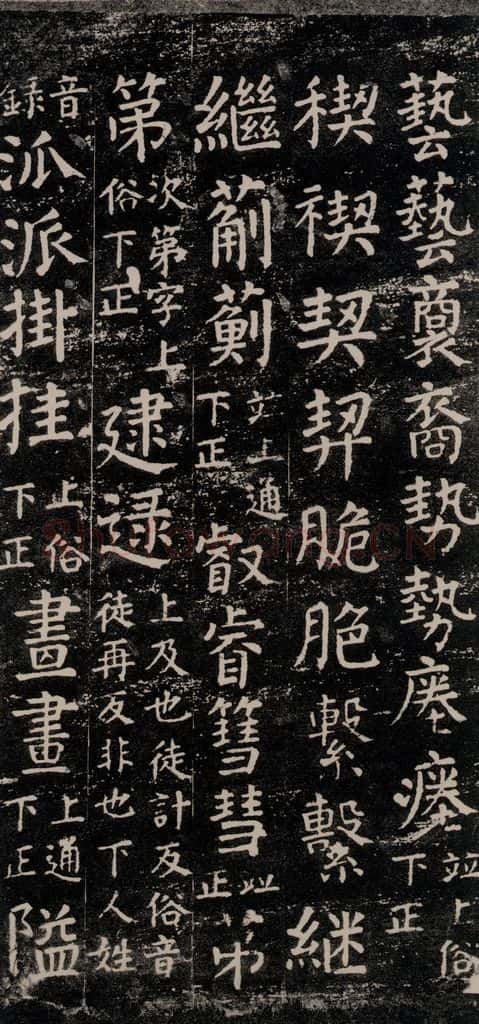 藝裔勢勢瘞瘞竝上俗下正
稧禊契脆脃繫繫継
繼薊竝上通下正叡睿篲彗竝正苐
第次第字上俗下正逮逯上及也徒計反俗音徒再反非也下人姓
音錄泒派掛挂上俗下正畫畫上通下正隘